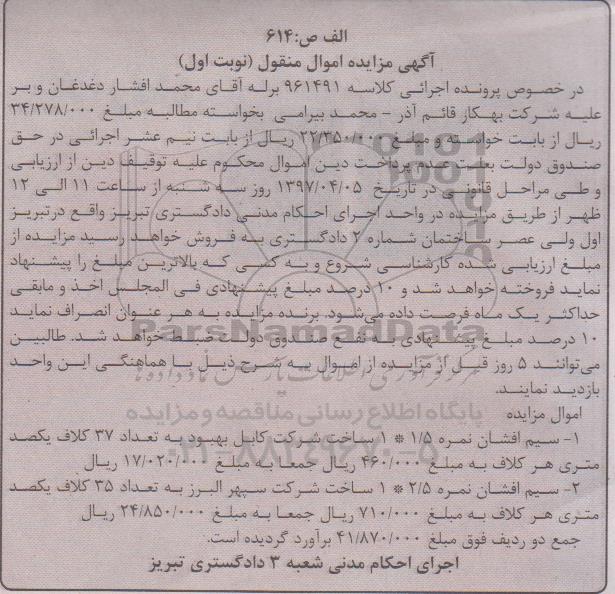 الف ص:۶۱۴
آگهی مزایده اموال منقول (نوبت اول)
در خصوص پرونده اجرائی کلاسه ۹۶۱۴۹۱ برله آقای محمد افشار دغدغان و بر
علیه شرکت بهکار قائم آذر – محمد بیرامی بخواسته مطالبه مبلغ ۳۴/۲۷۸/۰۰۰
ریال از بابت خواسته و مبلغ ۲۲/۳۵۰/۰۰۰ ریال از بابت نیم عشر اجرائی در حق
صندوق دولت بعلت عدم پرداخت دین اموال محکوم علیه توقیف دین از ارزیابی
و طی مراحل قانونی در تاریخ ۱۳۹۷/۰۴/۰۵ روز سه شنبه از ساعت ۱۱ الی ۱۲
ظهر از طریق مزایده در واحد اجرای احکام مدنی دادگستری تبریز واقع درتبریز
اول ولی عصر ساختمان شماره ۲ دادگستری به فروش خواهد رسید مزایده از
مبلغ ارزیابی شده کارشناسی شروع و به کسی که بالاترین مبلغ را پیشنهاد
نماید فروخته خواهد شد و ۱۰ درصد مبلغ پیشنهادی فی المجلس اخذ و مابقی
حداکثر یک ماه فرصت داده می‌شود. برنده مزایده به هر عنوان انصراف نماید
۱۰ درصد مبلغ پیشنهادی به نفع صندوق دولت ضبط خواهد شد. طالبین
می‌توانند ۵ روز قبل از مزایده از اموال به شرح ذیل با هماهنگی این واحد
بازدید نمایند.
اموال مزایده
۱- سیم افشان نمره ۱/۵ * ۱ ساخت شرکت کابل بهبود به تعداد ۳۷ کلاف یکصد
متری هر کلاف به مبلغ ۴۶۰/۰۰۰ ریال جمعا به مبلغ ۱۷/۰۲۰/۰۰۰ ریال
۲- سیم افشان نمره ۲/۵ * ۱ ساخت شرکت سپهر البرز به تعداد ۳۵ کلاف یکصد
متری هر کلاف به مبلغ ۷۱۰/۰۰۰ ریال جمعا به مبلغ ۲۴/۸۵۰/۰۰۰ ریال
جمع دو ردیف فوق مبلغ ۴۱/۸۷۰/۰۰۰ برآورد گردیده است.
اجرای احکام مدنی شعبه ۳ دادگستری تبریز
ParsNamadData
پایگاه اطلاع رسانی مناقصه و مزایده